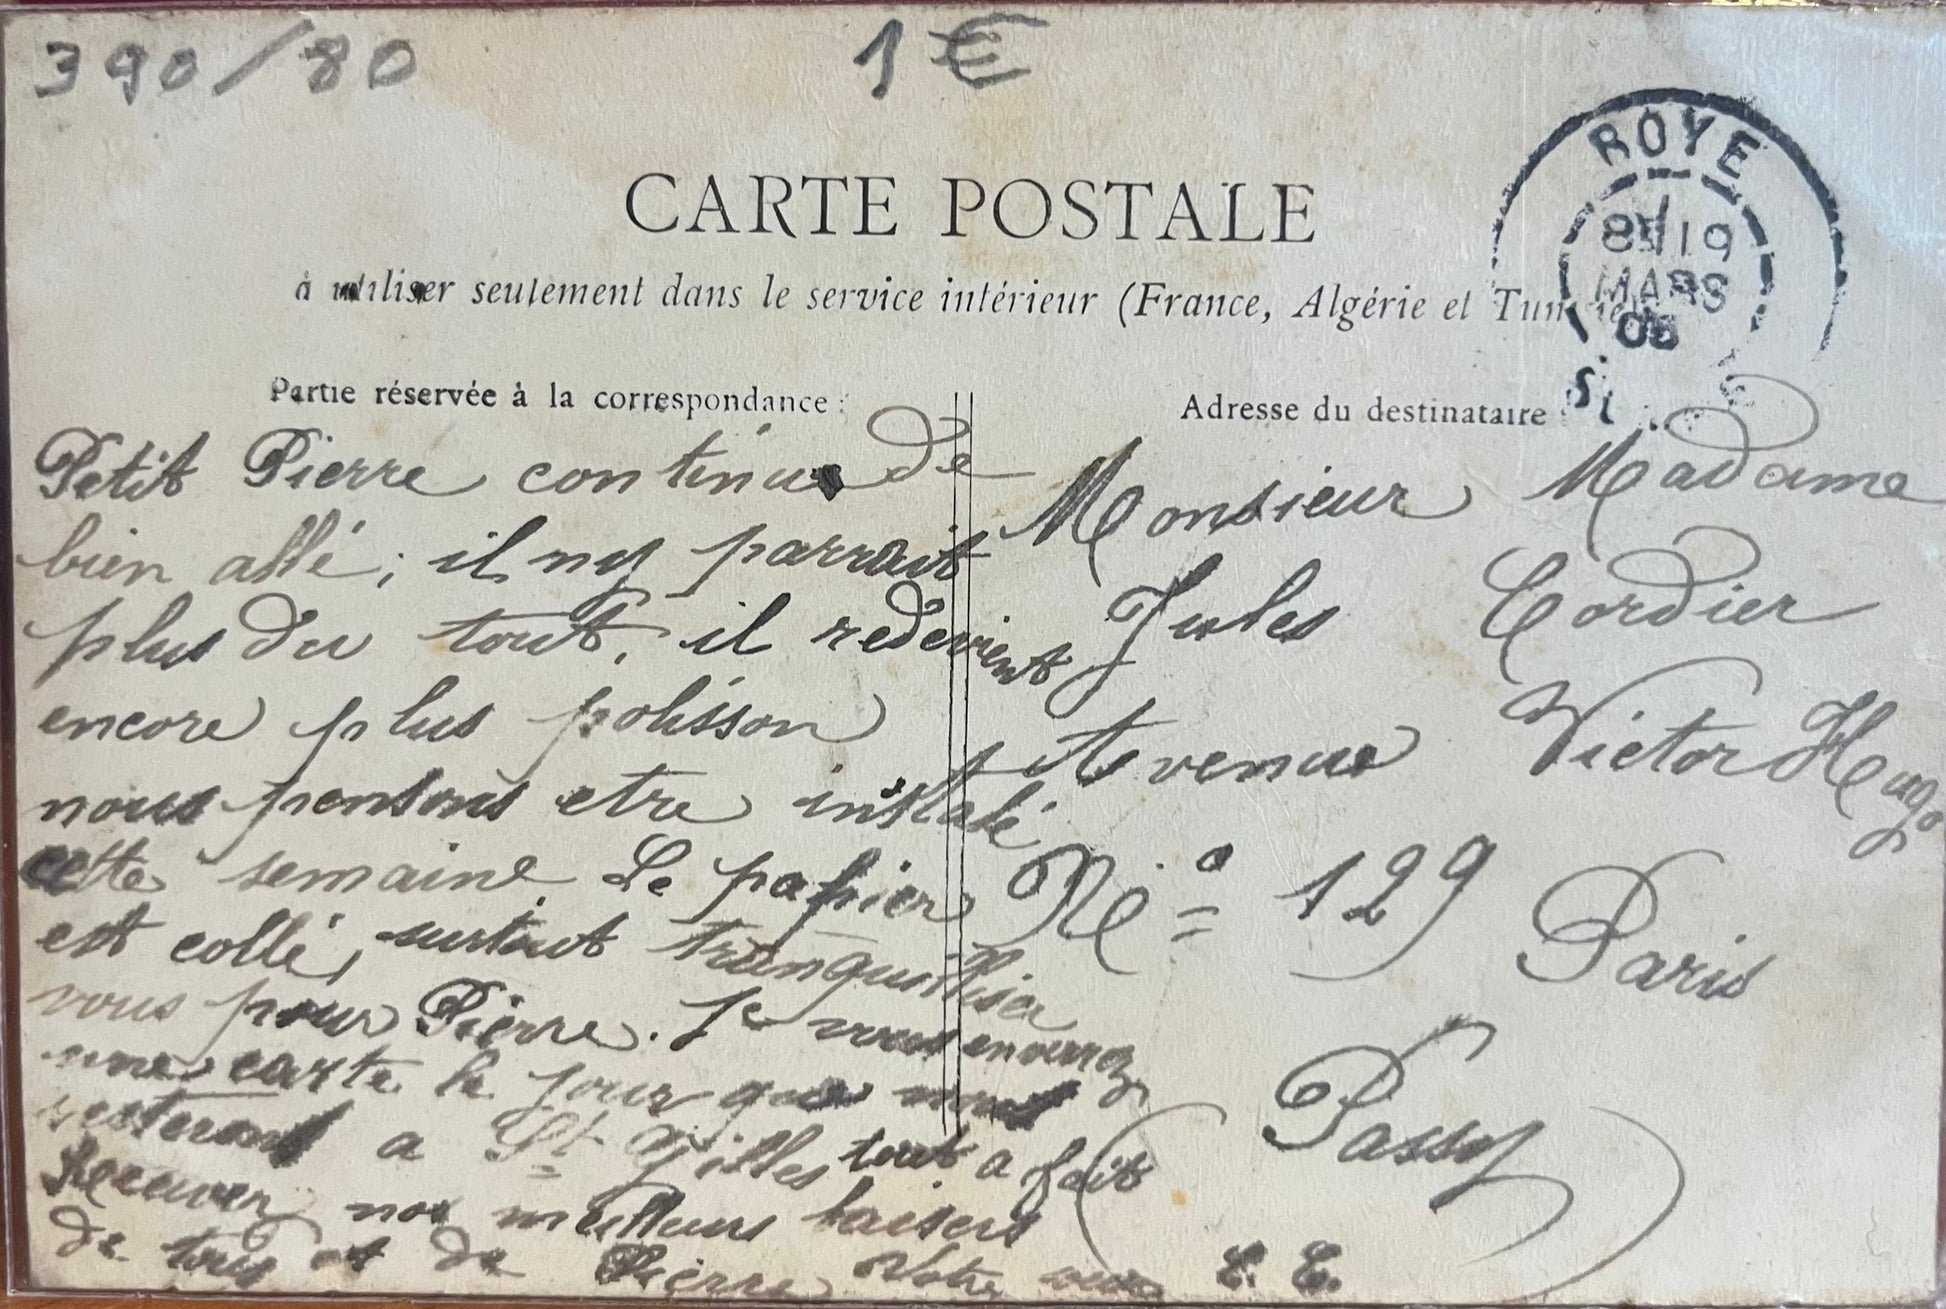 390/80
1€
CARTE POSTALE
à utiliser seulement dans le service intérieur (France, Algérie et Tunisie)
ROYE
8E 19
MARS
05
Partie réservée à la correspondance:
Petit Pierre continue de
bien allé; il ny parrait
plus du tout, il redevient
encore plus polisson
nous pensons etre installé
cette semaine. Le papier
est collé, surtout tranquilliser
vous pour Pierre. Je vous enverrez
une carte le jour que nous
resterons a St Gilles tout a fait
Recever nos meilleurs baisers
de tous et de Pierre Votre
E. E.
Adresse du destinataire
Monsieur Madame
Jules Cordier
Avenue Victor Hugo
No = 129
Paris
(Passy)